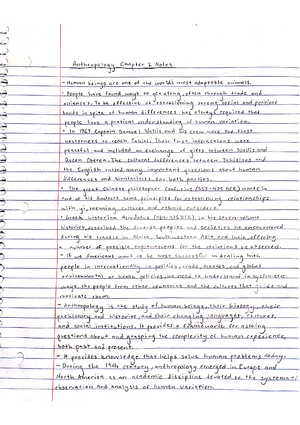 Anthropology Chapter 1 Notes
- Human beings are one of the worlds most adaptable animals.
- People have found ways to get along, often through trade and
alliances. To be effective at establishing strong social and political
bonds in spite of human differences has always required that
people have a practical understanding of human variation.
- In 1767 Captain Samuel Wallis and his crew were the first
westerners to reach Tahiti. Their first interactions were
peaceful and included an exchange of gifts between Wallis and
Queen Oberea. The cultural differences between Tahitians and
the English raised many important questions about human
differences and similarities, for both parties.
- The great Chinese philosopher Confucius (551-479 BCE) wrote in
one of his analects some principles for establishing relationships
with
- Greek historian Herodotus in his seven-volume
histories, described the diverse peoples and societies he encountered
during his travels in Africa, Southwestern Asia, and India, offering
a number of possible explanations for the variations he observed.
- If we Americans want to be most successful in dealing with
people in internationally in politics, trade, treaties, and global
environmental or health policies, we need to understand in systematic
ways the people from other countries and the cultures that guide and
motivate them.
- Anthropology is the study of human beings, their biology, their
prehistory and histories, and their changing languages, cultures,
and social institutions. It provides a framework for asking
questions about and grasping the complexity of human experience,
both past and present.
- It provides knowledge that helps solve human problems today.
- During the 19th century, anthropology emerged in Europe and
North America as an academic discipline devoted to the systematic
observation and analysis of human variation.